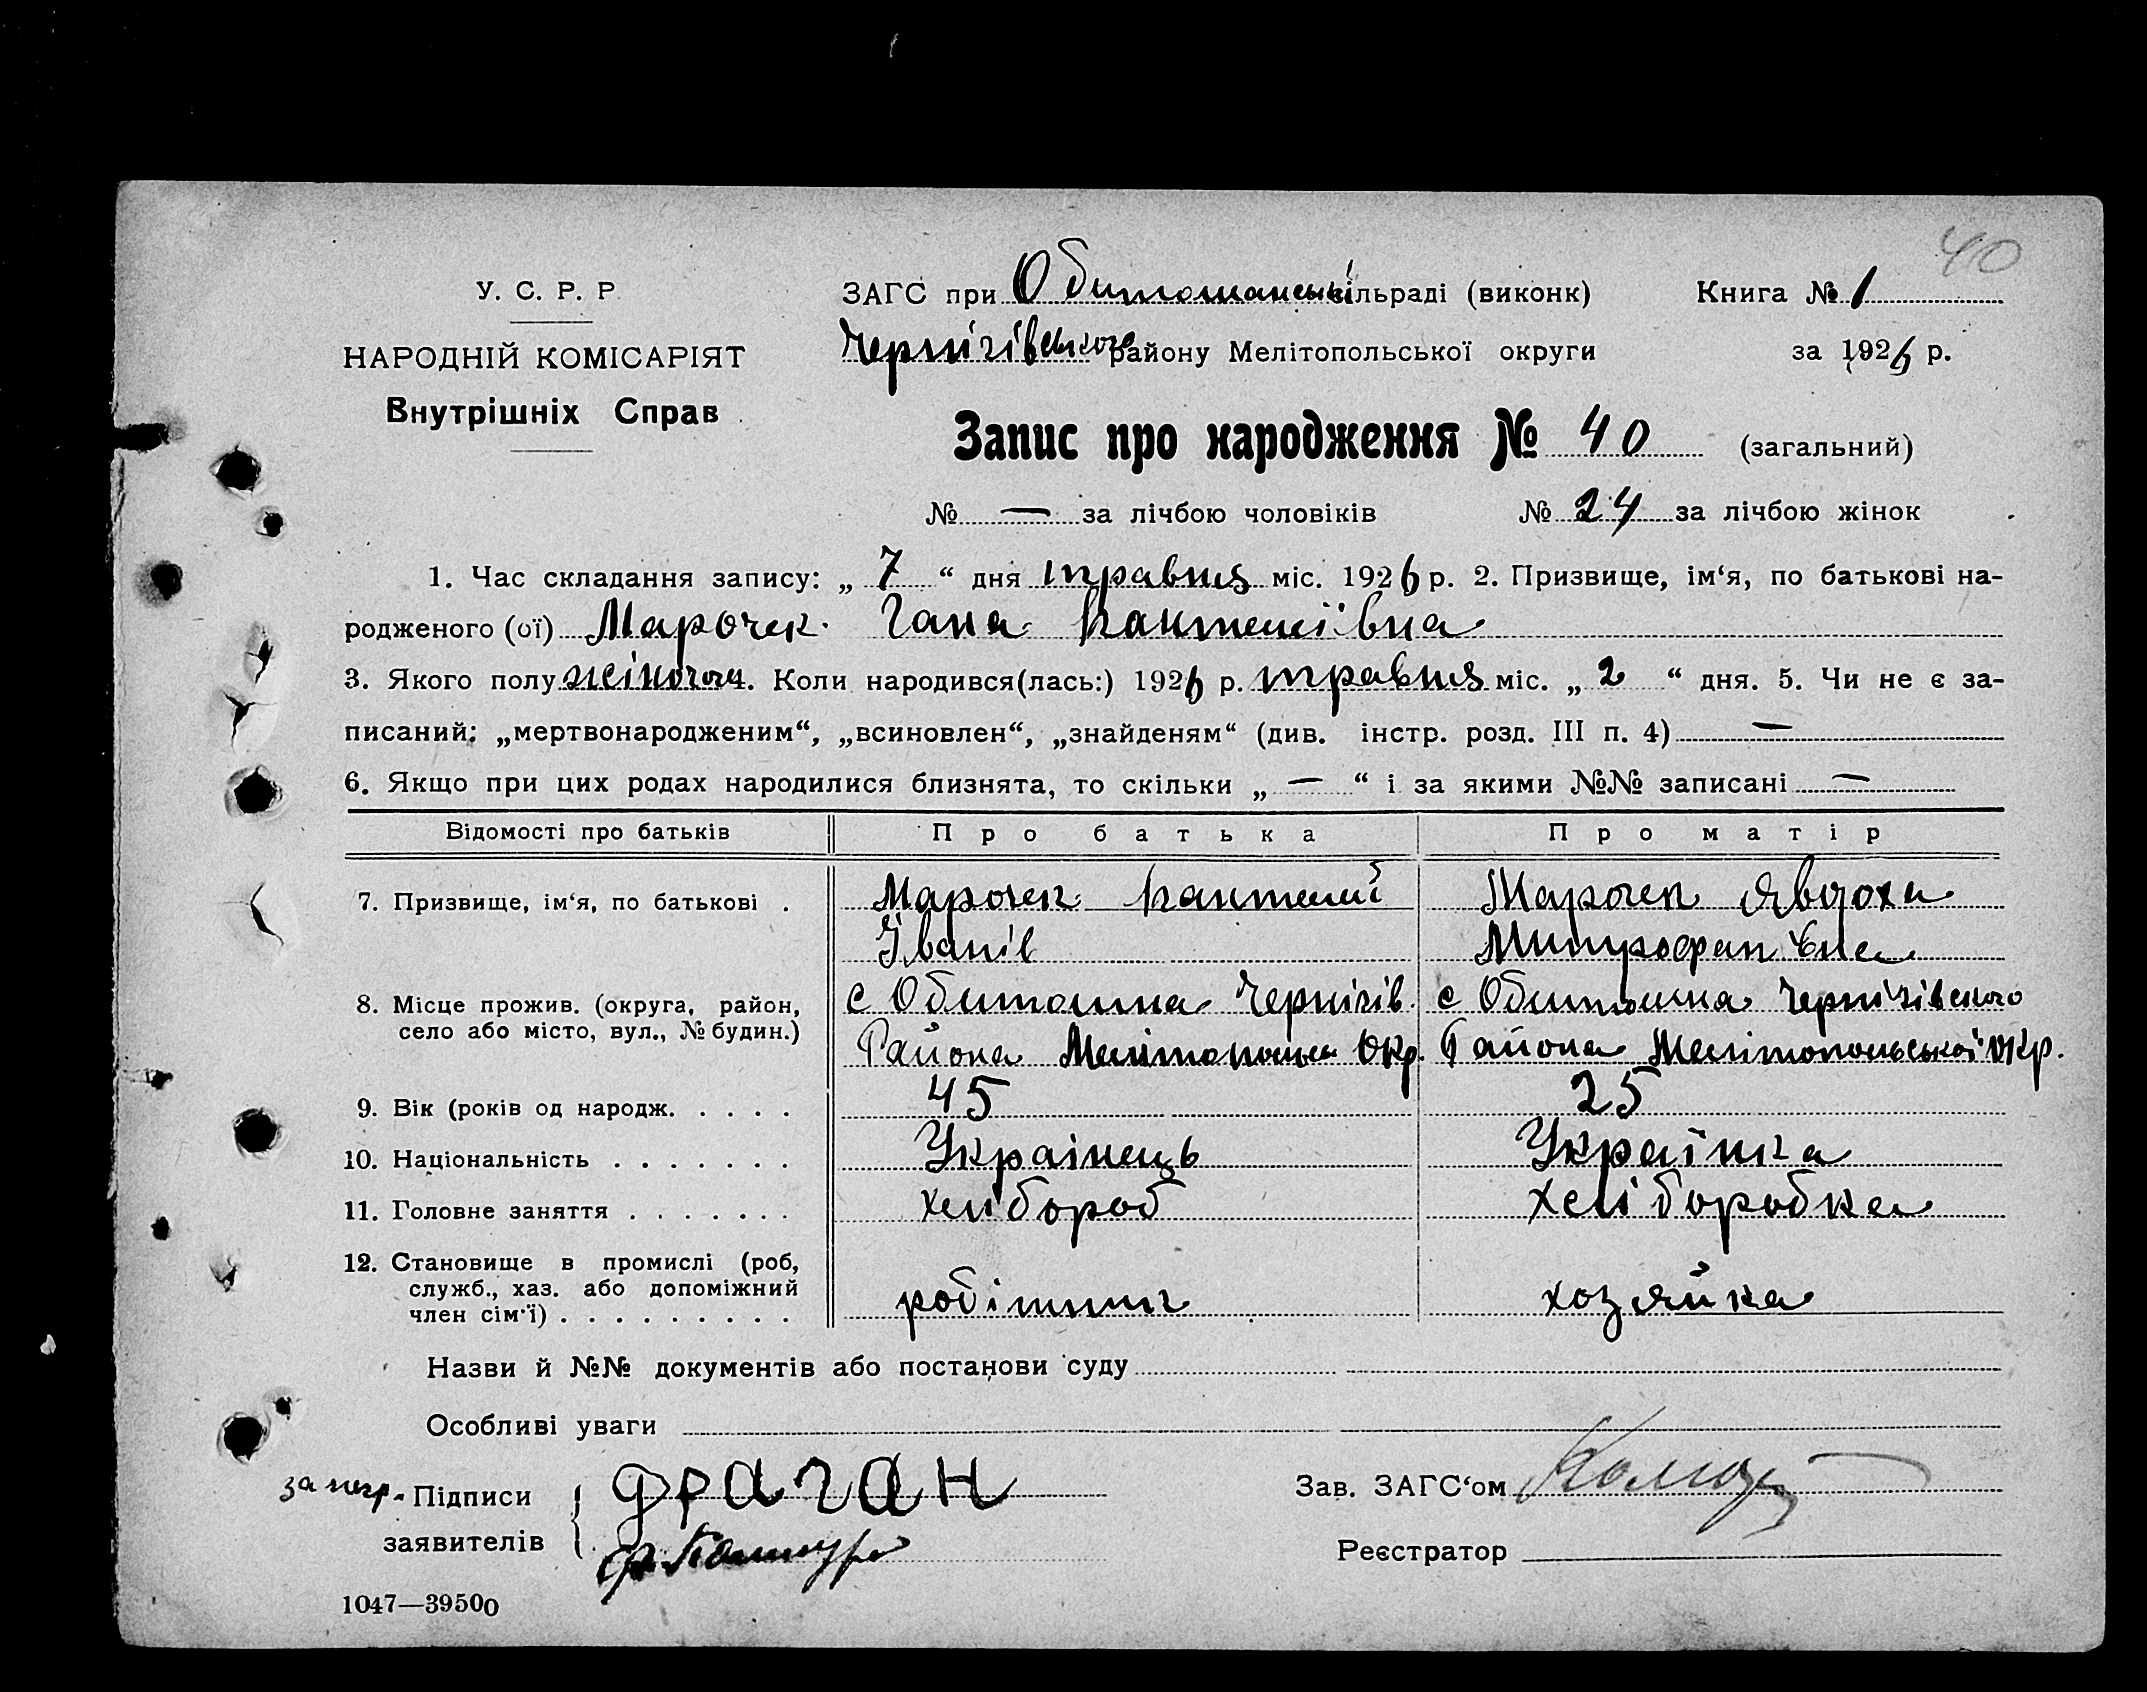 40
У. С. Р. Р
НАРОДНІЙ КОМІСАРІЯТ
Внутрішніх Справ
ЗАГС при Обитошанській сільраді (виконк)
Книга № 1
Чернігівського району Мелітопольської округи
за 1926 р.
Запис про народження № 40 (загальний)
№ — за лічбою чоловіків № 24 за лічбою жінок
1. Час складання запису: „ 7 “ дня травня міс. 1926 р. 2. Призвище, ім‘я, по батькові на-
родженого (ої) Марочек Гана Пантеліївна
3. Якого полу жіночого 4. Коли народився(лась:) 1926 р. травня міс. „ 2 “ дня. 5. Чи не є за-
писаний: „мертвонародженим“, „всиновлен“, „знайденям“ (див. інстр. розд. III п. 4) —
6. Якщо при цих родах народилися близнята, то скільки „ — “ і за якими №№ записані —
Відомості про батьків Про батька Про матір
7. Призвище, ім‘я, по батькові . Марочек Пантелий Марочек Явдоха
Іванів Митрофанівна
8. Місце прожив. (округа, район, с Обиточна Чернігів. с Обиточна Чернігівского
село або місто, вул., № будин.) Района Мелітопольск Окр. Района Мелітопольської окр.
9. Вік (років од народж. . . . . 45 25
10. Національність . . . . . . . Украінець Украінка
11. Головне заняття . . . . . . . хлібороб хліборобка
12. Становище в промислі (роб,
служб., хаз. або допоміжний
член сім‘ї) . . . . . . . . . робітник хозяйка
Назви й №№ документів або постанови суду
Особливі уваги
за негр. Підписи драган
заявителів
Зав. ЗАГС‘ом
Реєстратор
1047—39500